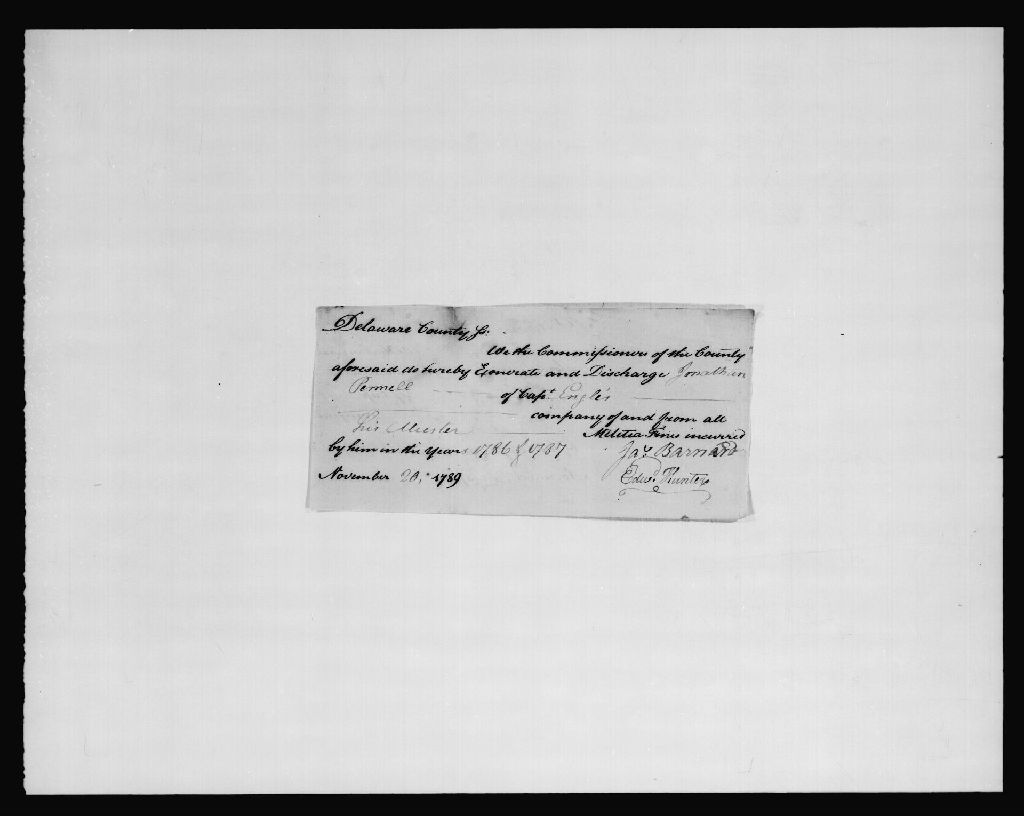 Delaware County Ss.
We the Commissioners of the County
aforesaid do hereby Exonerate and Discharge Jonathan
Pennell of Capt. Engle's
company of and from all
his Muster Militia Fines incurred
by him in the Years 1786 & 1787
Jas. Barnard
November 20, 1789
Edwd. Hunter